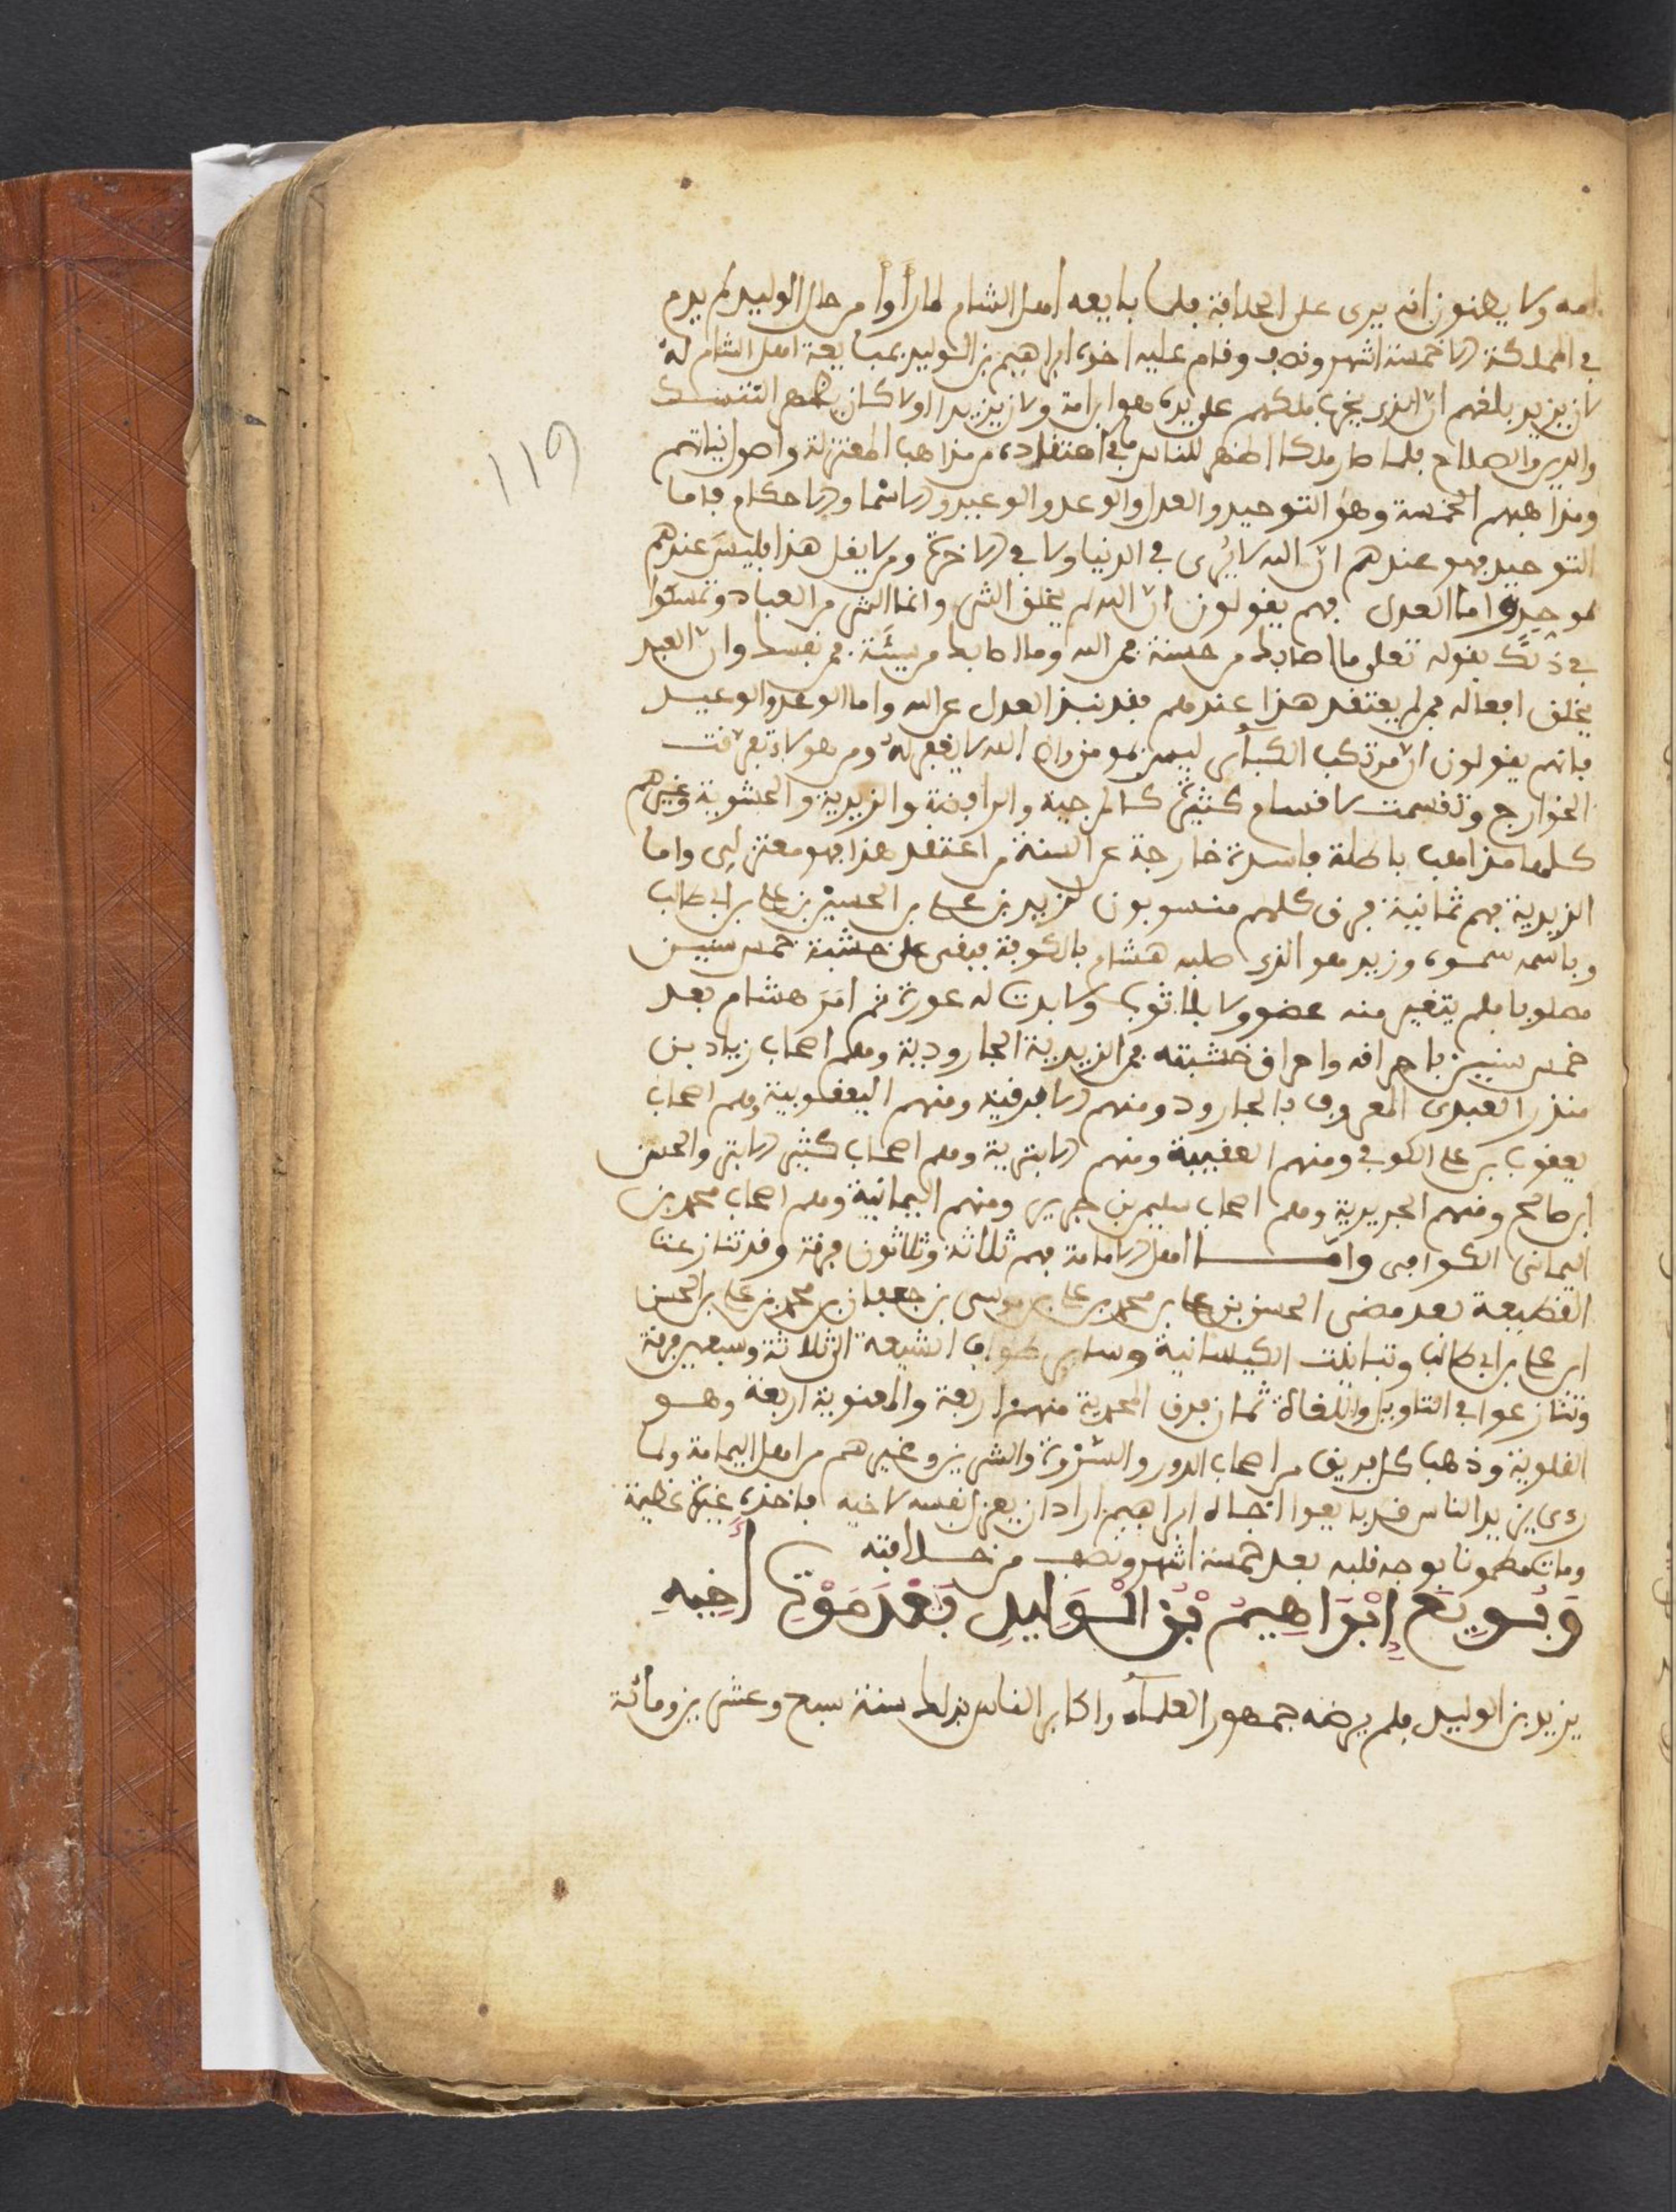 امه ولا يظنون انه يرى على الخلافة فلما بايعه اهل الشام لما رأوا من حال الوليد لم يدم
في المملكة الا خمسة اشهر ونصف وقام عليه اخوه ابراهيم بن الوليد بمبايعة اهل الشام له
لان يزيد بلغهم ان الذي يخرب ملكهم على يده هو ابن امة ولان يزيد اولا كان يظهر التنسك
والدين والصلاح فلما صار ملكا اظهر للناس ما في اعتقاده من مذاهب المعتزلة واصول نياتهم
ومذاهبهم الخمسة وهو التوحيد والعدل والوعد والوعيد والاسما والاحكام فاما
التوحيد فهو عندهم ان الله لا يُرى في الدنيا ولا في الاخرة ومن لا يقل هذا فليس عندهم
بموحد واما العدل فهم يقولون ان الله لم يخلق الشر وانما الشر من العباد وتمسكوا
في ذلك بقوله تعلى ما اصابك من حسنة فمن الله وما اصابك من سيئة فمن نفسك وان العبد
يخلق افعاله فمن لم يعتقد هذا عندهم فقد نبذ العدل عن الله واما الوعد والوعيد
فانهم يقولون ان مرتكب الكبآئر ليس بمومن وان الله لا يغفر له ومن هولاء تفرقت
الخوارج وتقسمت لاقسام كثيرة كالمرجية والرافضة والزيدية والحشوية وغيرهم
كلها مذاهب باطلة فاسدة خارجة عن السنة من اعتقد هذا فهو معتزلي واما
الزيدية فهم ثمانية فرق كلهم منسوبون لزيد بن على بن الحسين بن على بن ابي طالب
وباسمه سموه وزيد هو الذي صلبه هشام بالكوفة فبقى على خشبة خمس سنين
مصلوبا فلم يتغير منه عضو ولا بلا ثوبه ولا بدت له عورة ثم امر هشام بعد
خمس سنين باحراقه واحراق خشبته فمن الزيدية الجارودية وهم اصحاب زياد بن
منذر العبدى المعروف بالجارود ومنهم الافرقية ومنهم اليعقوبية وهم اصحاب
يعقوب بن على الكوفي ومنهم العقبية ومنهم الابترية وهم اصحاب كثير الابتر والحسن
ابن صالح ومنهم الجريرية وهم اصحاب سليم بن جرير ومنهم اليمانية وهم اصحاب محمد بن
اليمانى الكوفى واما اهل الامامة فهم ثلاثة وثلاثون فرقة وقد تنازعت
القطيعة بعد مضي الحسن بن على بن محمد بن على بن موسى بن جعفر بن محمد بن على بن الحسن
ابن على بن ابي طالب وتباينت الكيسانية وساير طوايف الشيعة الثلاثة وسبعين فرقة
وتنازعوا في التاويل والغلاة ثمان فرق المحمدية منهم اربعة والمعنوية اربعة وهو
العلوية وذهب كل فريق من اصحاب الدور والسرورة والشرين وغيرهم من اهل اليمامة ولما
رءى يزيد الناس قد بايعوا اخاه ابراهيم اراد ان يعزل نفسه لاخيه فاخذه غيرة عظيمة
ومات مطعونا بوجه قلبه بعد خمسة اشهر ونصف من خلافته
وَبُويِعَ إِبْرَاهِيمُ بْنُ الْوَلِيدِ بَعْدَ مَوْتِ أَخِيهِ
يزيد بن الوليد فلم يرضه جمهور العلمآء واكابر الناس بذلك سنة سبع وعشرين ومائة
119